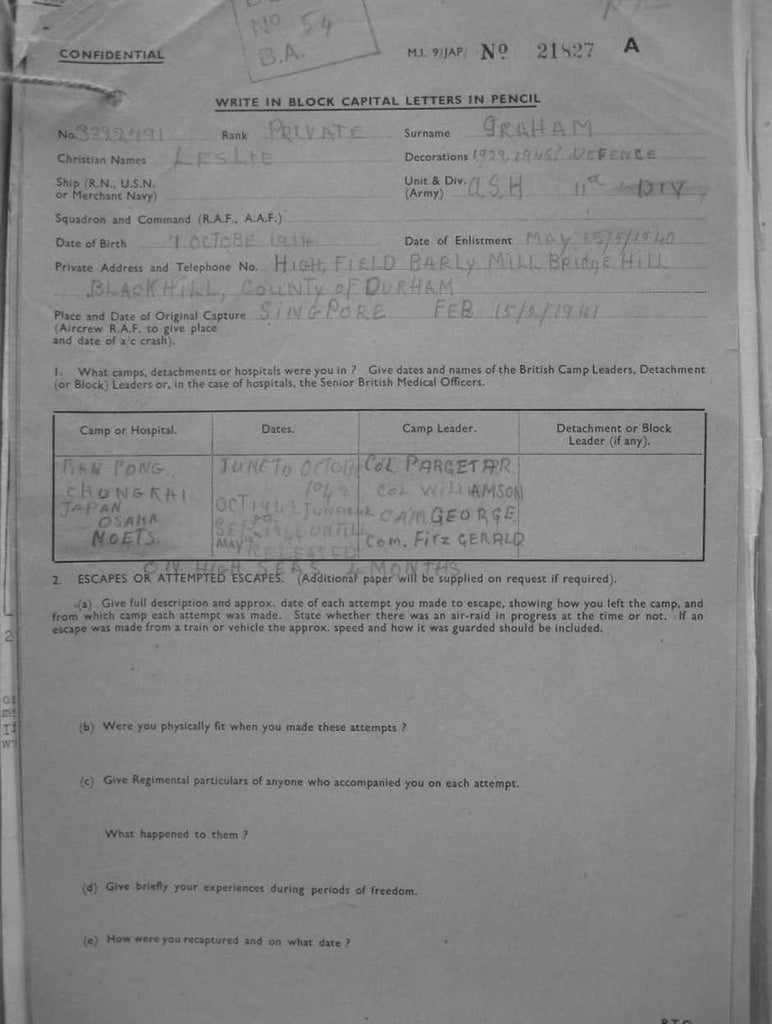 No 54
B.A.
CONFIDENTIAL M.I. 9/JAP/ No 21827 A
WRITE IN BLOCK CAPITAL LETTERS IN PENCIL
No. Rank PRIVATE Surname GRAHAM
Christian Names LESLIE Decorations DEFENCE
Ship (R.N., U.S.N. Unit & Div. A.S.H 11th DIV
or Merchant Navy) (Army)
Squadron and Command (R.A.F., A.A.F.)
Date of Birth 7 OCTOBE 1914 Date of Enlistment MAY 15/5/1940
Private Address and Telephone No. HIGH, FIELD BARLY MILL BRIDGE HILL
BLACKHILL, COUNTY OF DURHAM
Place and Date of Original Capture SINGPORE FEB 15/2/1941
(Aircrew R.A.F. to give place
and date of a/c crash).
1. What camps, detachments or hospitals were you in ? Give dates and names of the British Camp Leaders, Detachment
(or Block) Leaders or, in the case of hospitals, the Senior British Medical Officers.
Camp or Hospital. Dates. Camp Leader. Detachment or Block
Leader (if any).
BAN PONG JUNE TO COL PARGETAR
CHONGKHI 1942 COL WILLIAMSON
JAPAN OCT 1942 CAM GEORGE
OSAKA
NOETS MAY RELEASED COM. FITZ GERALD
ON HIGH SEAS MONTHS
2. ESCAPES OR ATTEMPTED ESCAPES. (Additional paper will be supplied on request if required).
(a) Give full description and approx. date of each attempt you made to escape, showing how you left the camp, and
from which camp each attempt was made. State whether there was an air-raid in progress at the time or not. If an
escape was made from a train or vehicle the approx. speed and how it was guarded should be included.
(b) Were you physically fit when you made these attempts ?
(c) Give Regimental particulars of anyone who accompanied you on each attempt.
What happened to them ?
(d) Give briefly your experiences during periods of freedom.
(e) How were you recaptured and on what date ?